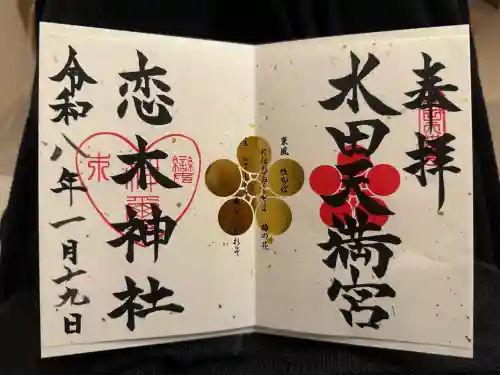 奉拝
水田天満宮
東風
恋木神社
令和八年一月十九日